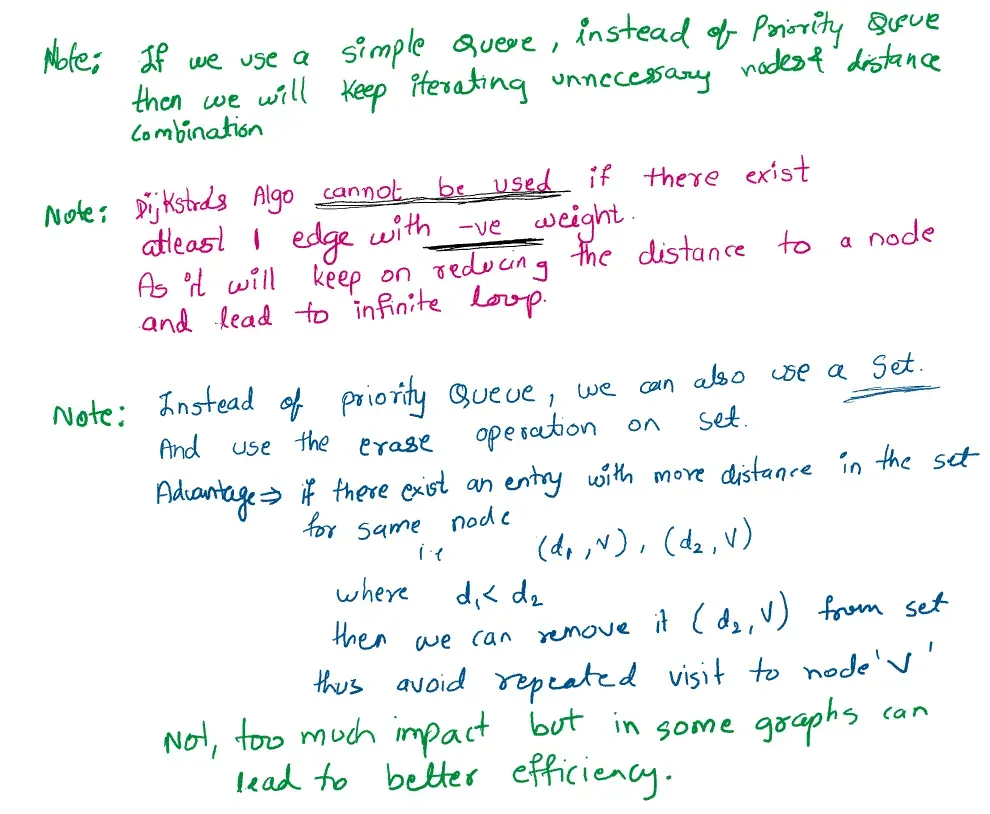 Note: If we use a simple Queue, instead of Priority Queue
then we will keep iterating unnecessary nodes & distance
combination
Note: Dijkstra's Algo cannot be used if there exist
atleast 1 edge with -ve weight.
As it will keep on reducing the distance to a node
and lead to infinite loop.
Note: Instead of priority Queue, we can also use a Set.
And use the erase operation on set.
Advantage ⇒ if there exist an entry with more distance in the set
for same node
i.e (d₁, V), (d₂, V)
where d₁ < d₂
then we can remove it (d₂, V) from set
thus avoid repeated visit to node 'V'
Not, too much impact but in some graphs can
lead to better efficiency.